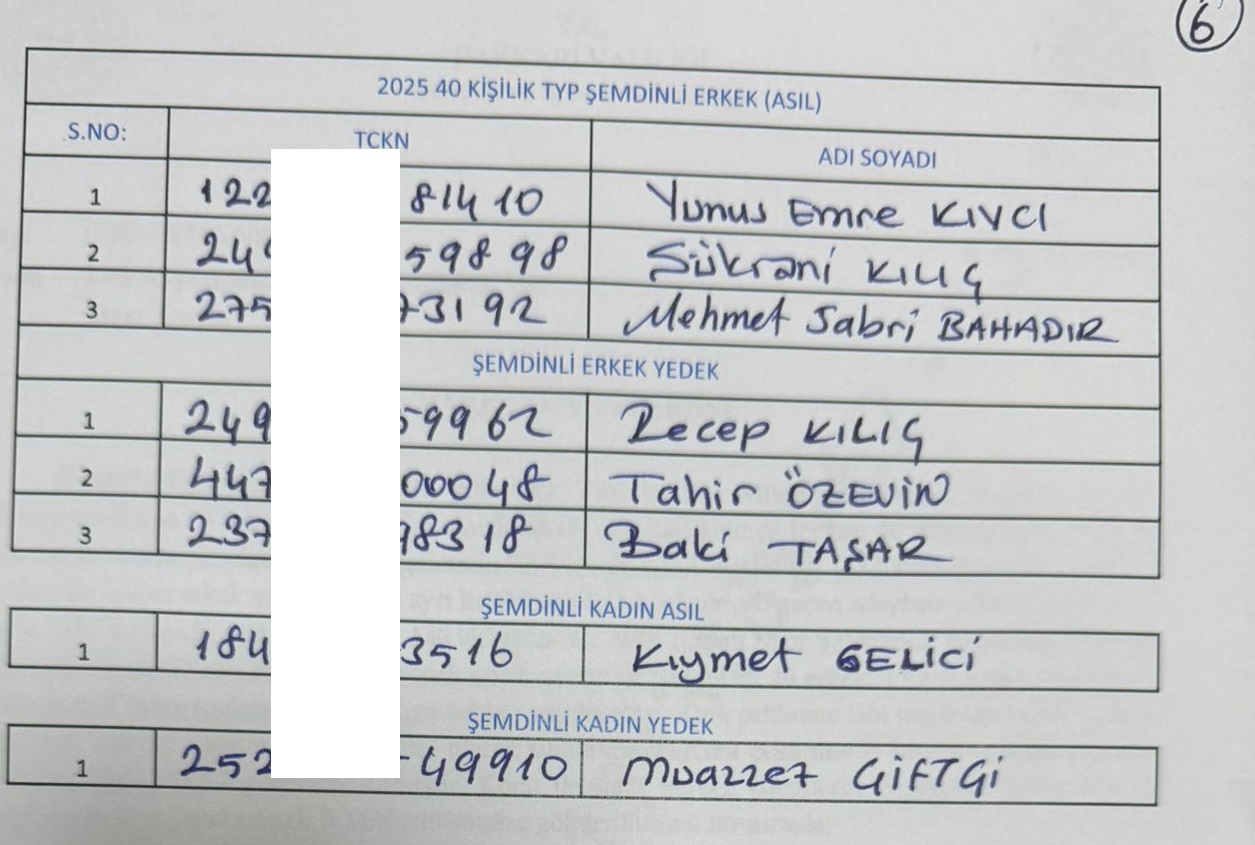 6
2025 40 KİŞİLİK TYP ŞEMDİNLİ ERKEK (ASIL)
S.NO: TCKN ADI SOYADI
1 122 81410 Yunus Emre KIVCI
2 24 59898 Şükrani KILIÇ
3 275 73192 Mehmet Sabri BAHADIR
ŞEMDİNLİ ERKEK YEDEK
1 249 59962 Recep KILIÇ
2 447 00048 Tahir ÖZEVİN
3 237 18318 Baki TAŞAR
ŞEMDİNLİ KADIN ASIL
1 184 3516 Kıymet GELİCİ
ŞEMDİNLİ KADIN YEDEK
1 252 49910 Muazzez ÇİFTÇİ